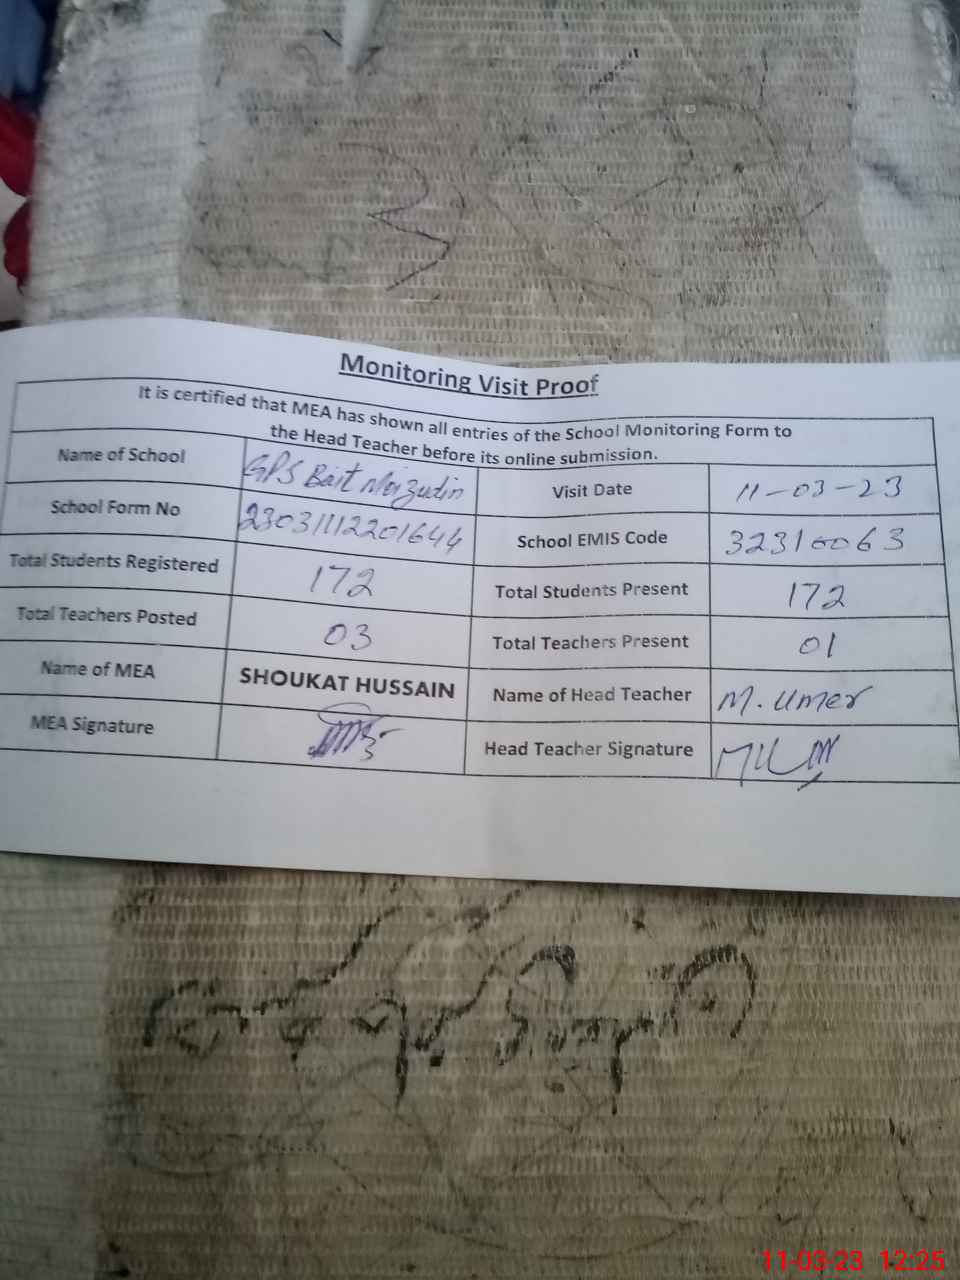 Monitoring Visit Proof
It is certified that MEA has shown all entries of the School Monitoring Form to
the Head Teacher before its online submission.
Name of School GPS Bait Visit Date 11-03-23
School Form No 23031112201644 School EMIS Code 32310063
Total Students Registered 172 Total Students Present 172
Total Teachers Posted 03 Total Teachers Present 01
Name of MEA SHOUKAT HUSSAIN Name of Head Teacher M. Umer
MEA Signature Head Teacher Signature
11-03-23 12:25